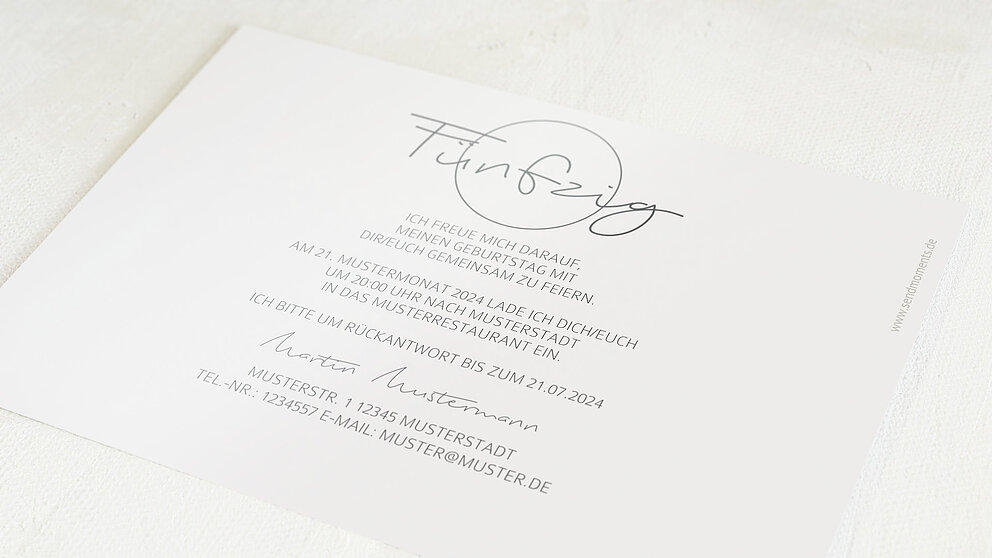 Fünfzig
ICH FREUE MICH DARAUF,
MEINEN GEBURTSTAG MIT
DIR/EUCH GEMEINSAM ZU FEIERN.
AM 21. MUSTERMONAT 2024 LADE ICH DICH/EUCH
UM 20:00 UHR NACH MUSTERSTADT
IN DAS MUSTERRESTAURANT EIN.
ICH BITTE UM RÜCKANTWORT BIS ZUM 21.07.2024
Martin Mustermann
MUSTERSTR. 1 12345 MUSTERSTADT
TEL.-NR.: 1234557 E-MAIL: MUSTER@MUSTER.DE
www.sendmoments.de